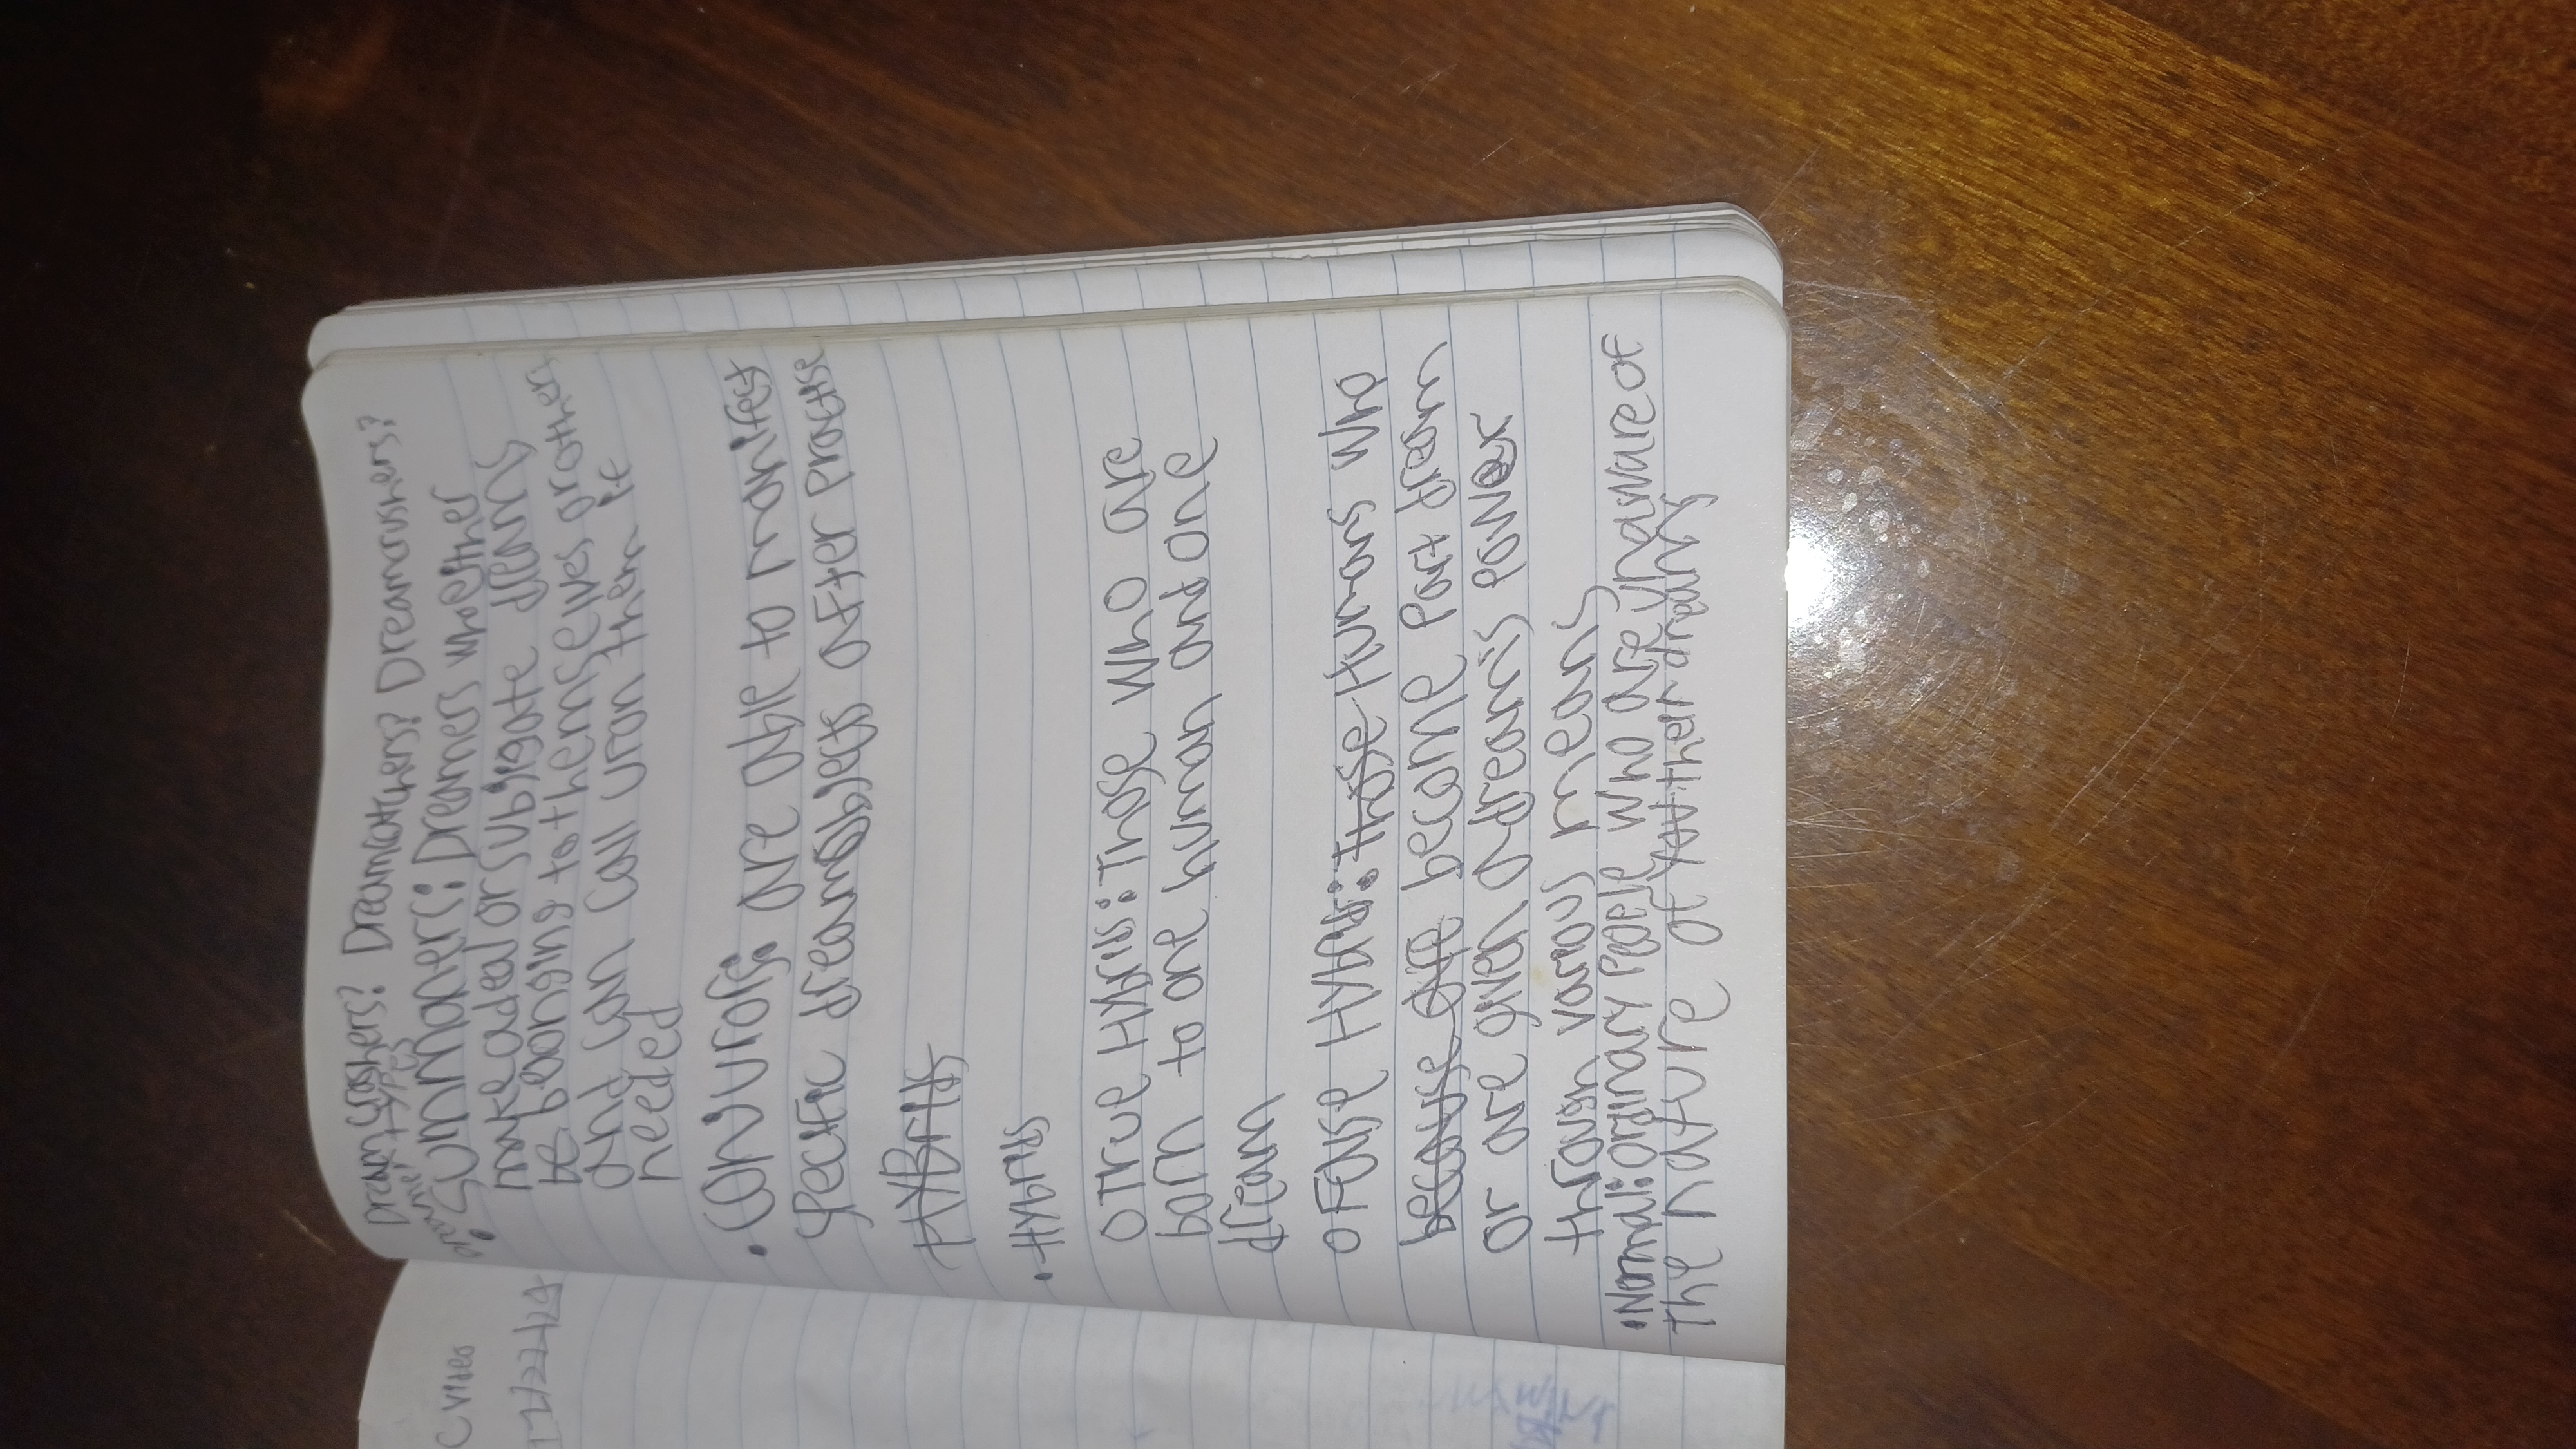 C Video
Dreamcrashers? Dreamcatchers? Dreamcrushers?
Dreamer types
• Summoners: Dreamers who either
make a deal or subjigate dreams
be belonging to themselves or others
and can call upon them if
needed
• Conjurors: are able to manifest
specific dream objects after practise
HYBrids
• Hybrids
o True Hybrids: Those who are
born to one human and one
dream
o False Hybrids: Those Humans who
because are become part dream
or are given a dream's power
through various means
• Normal: ordinary people who are unaware of
the nature of you their dreams